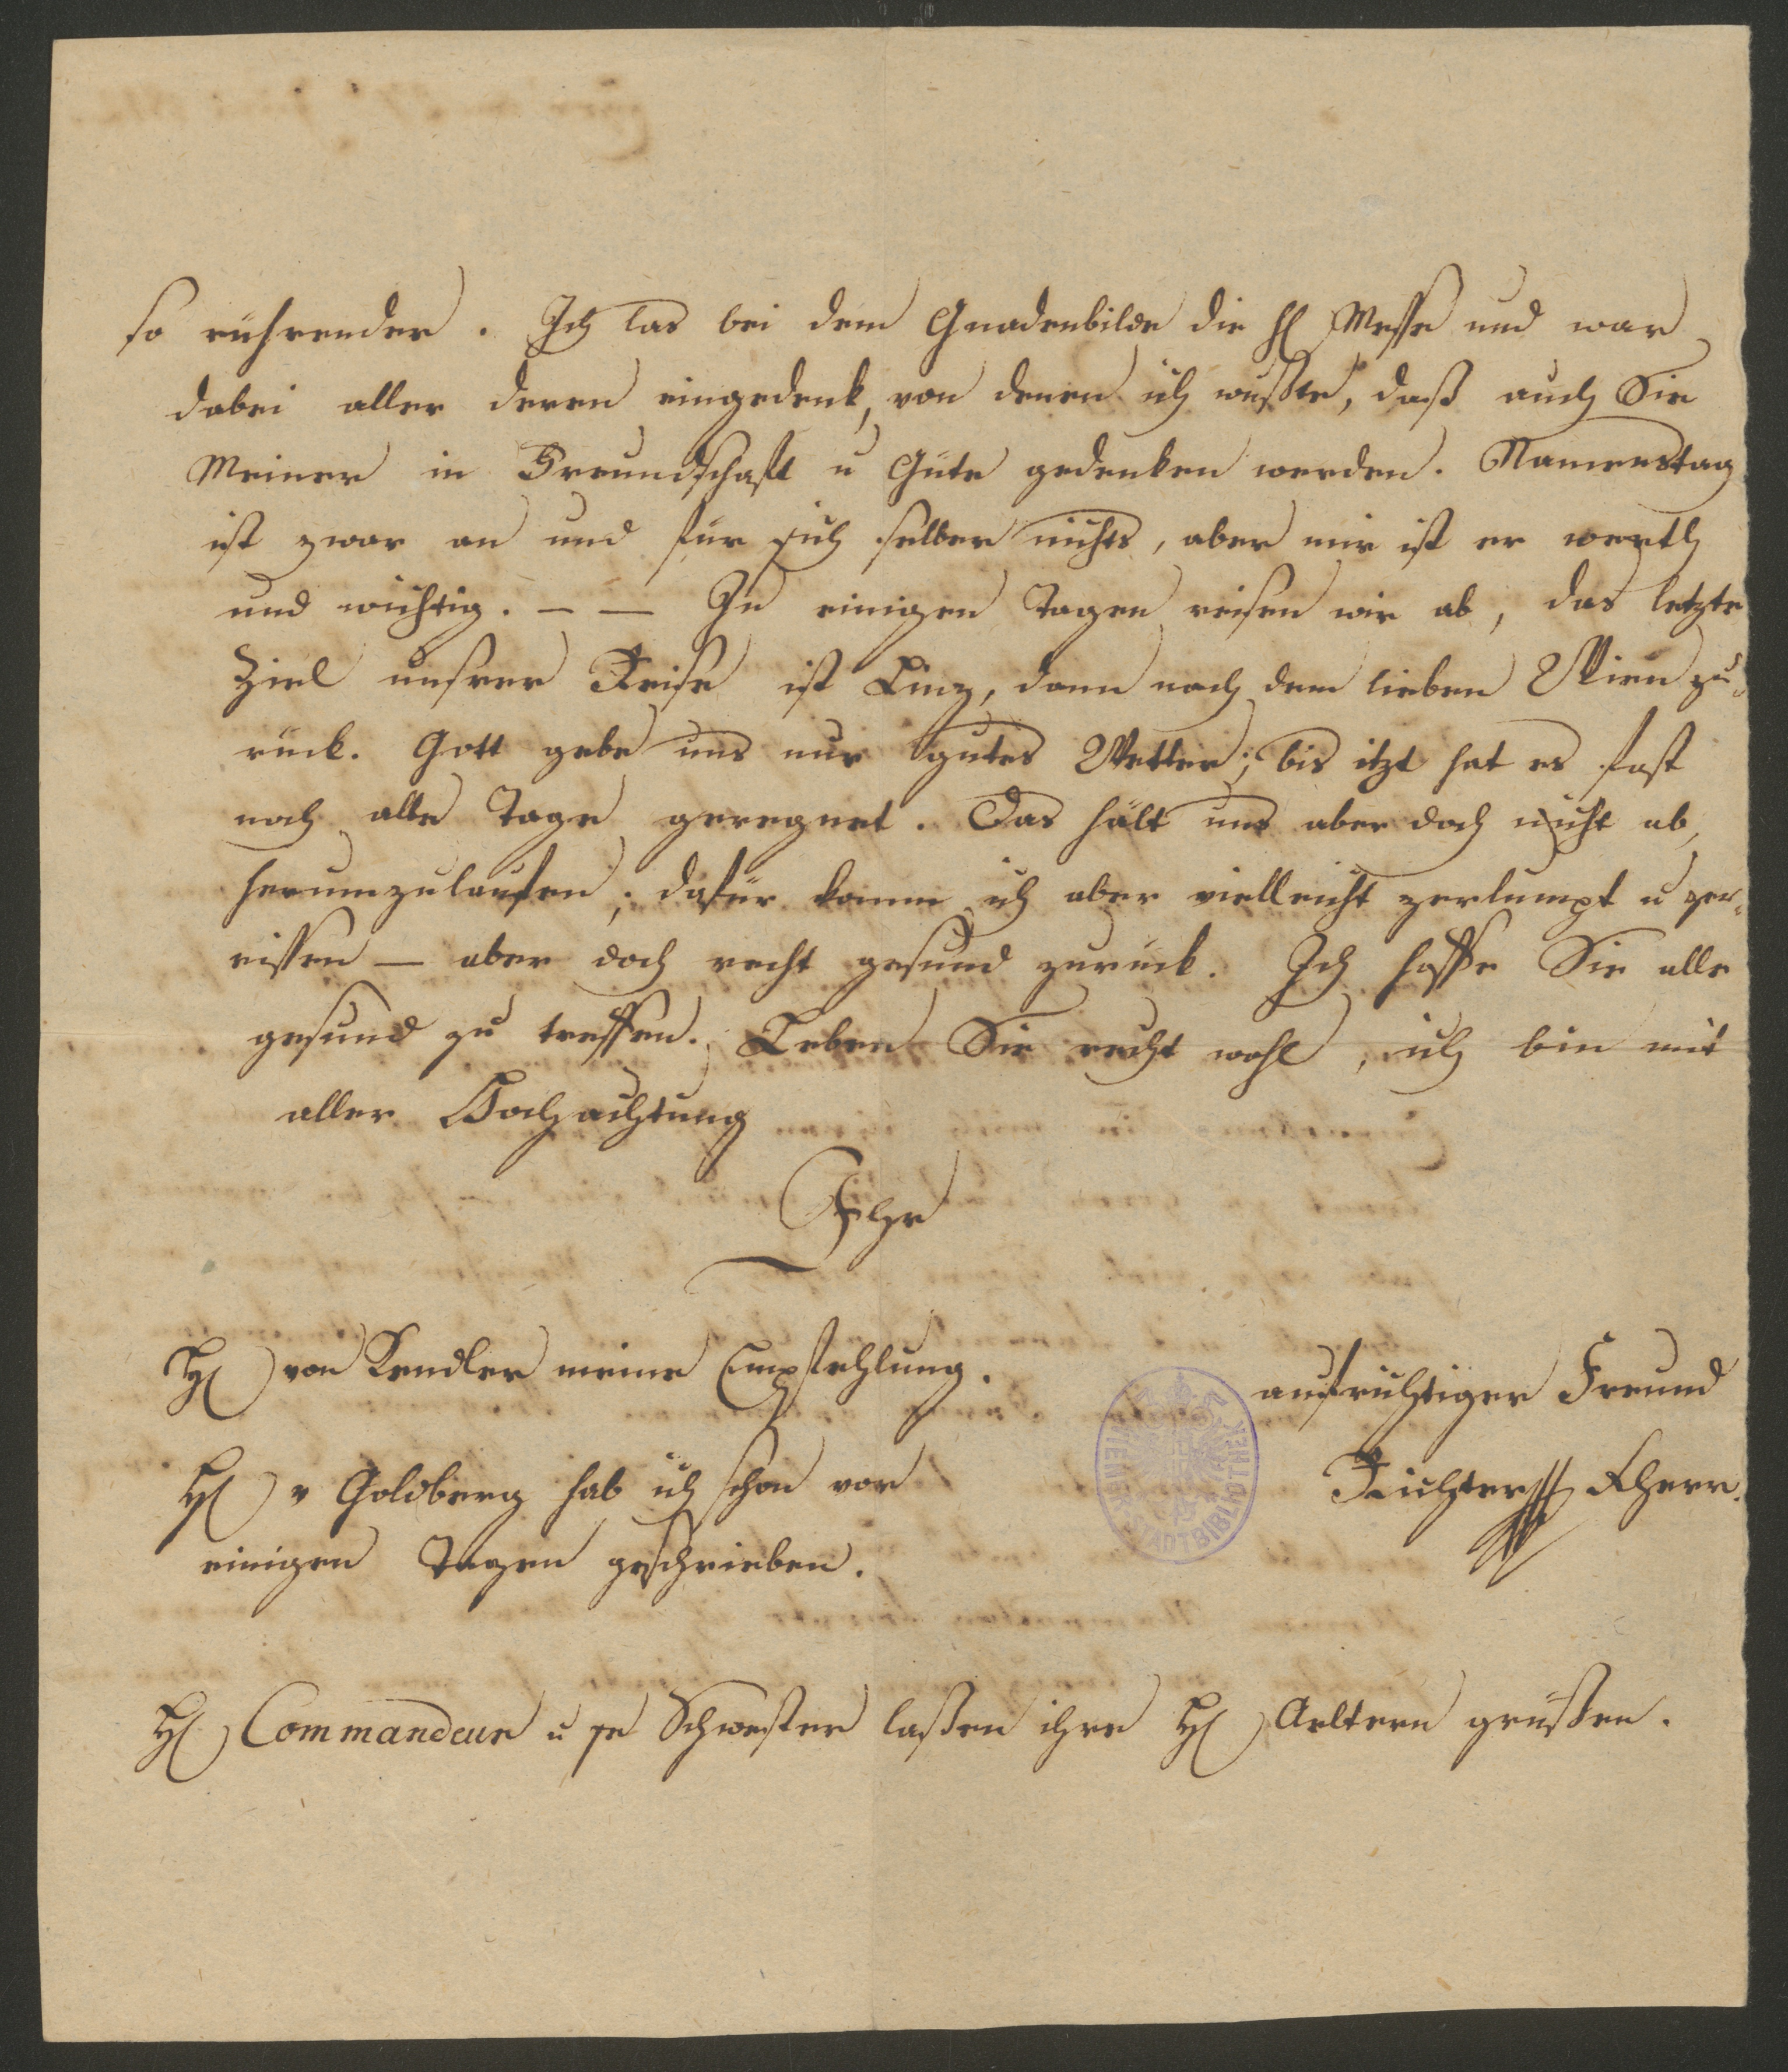 so rührender. Ich las bei dem Gnadenbilde die hl Messe und war
dabei aller deren eingedenk, von denen ich wußte, daß auch Sie
Meiner in Freundschaft u Güte gedenken werden. Namenstag
ist zwar an und für sich selber nichts, aber mir ist er werth
und wichtig. – — In einigen Tagen reisen wir ab, das letzte
Ziel unsrer Reise ist Linz, dann nach dem lieben Wien zu-
rück. Gott gebe uns nur gutes Wetter; bis itzt hat es fast
noch alle Tage geregnet. Das hält uns aber doch nicht ab,
herumzulaufen; dafür komm ich aber vielleicht zerlumpt u zer-
rissen — aber doch recht gesund zurück. Ich hoffe Sie alle
gesund zu treffen. Leben Sie recht wohl, ich bin mit
aller Hochachtung
Ihr
H von Kendler meine Empfehlung.
aufrichtiger Freund
H v Goldberg hab ich schon vor
Richter Kherr.
einigen Tagen geschrieben.
WIENER STADTBIBLIOTHEK
H Commandeur u se Schwester laßen ihre H Aeltern grüßen.